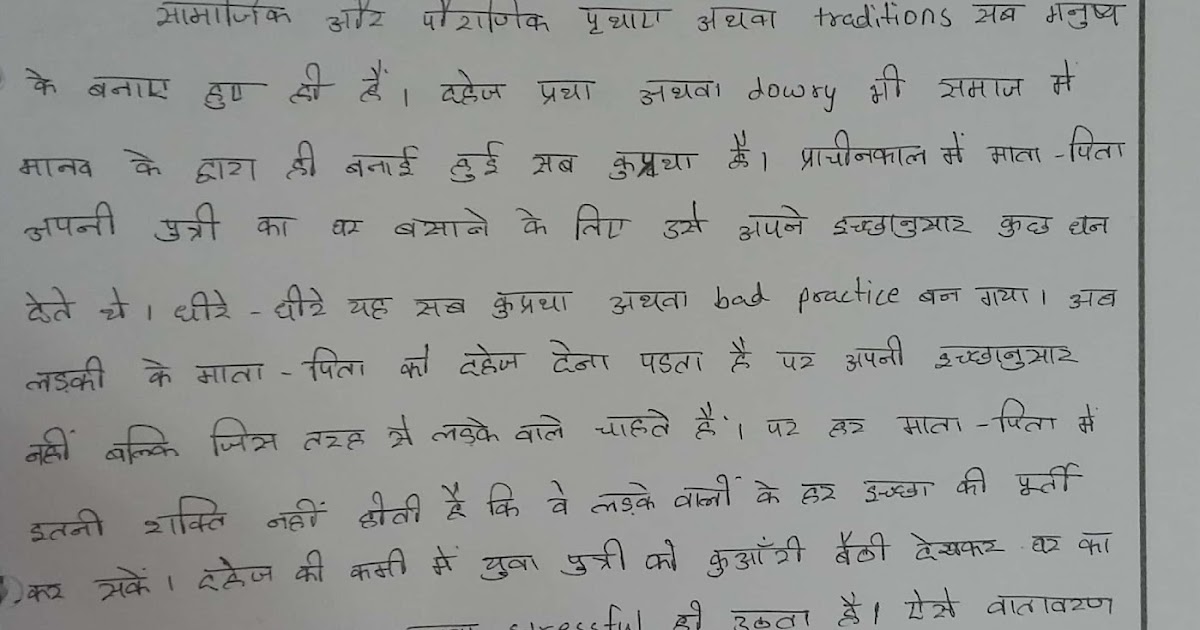 सामाजिक और पौराणिक प्रथाए अथवा traditions सब मनुष्य
के बनाए हुए ही हैं। दहेज प्रथा अथवा dowry भी समाज में
मानव के द्वारा ही बनाई हुई सब कुप्रथा है। प्राचीनकाल में माता-पिता
अपनी पुत्री का घर बसाने के लिए उसे अपने इच्छानुसार कुछ धन
देते थे। धीरे-धीरे यह सब कुप्रथा अथवा bad practice बन गया। अब
लड़की के माता-पिता को दहेज देना पडता है पर अपनी इच्छानुसार
नहीं बल्कि जिस तरह से लड़के वाले चाहते हैं। पर हर माता-पिता में
इतनी शक्ति नहीं होती है कि वे लड़के वालों के हर इच्छा की पूर्ती
कर सकें। दहेज की कमी में युवा पुत्री को कुआँरी बैठी देखकर घर का
stressful हो उठता है। ऐसे वातावरण